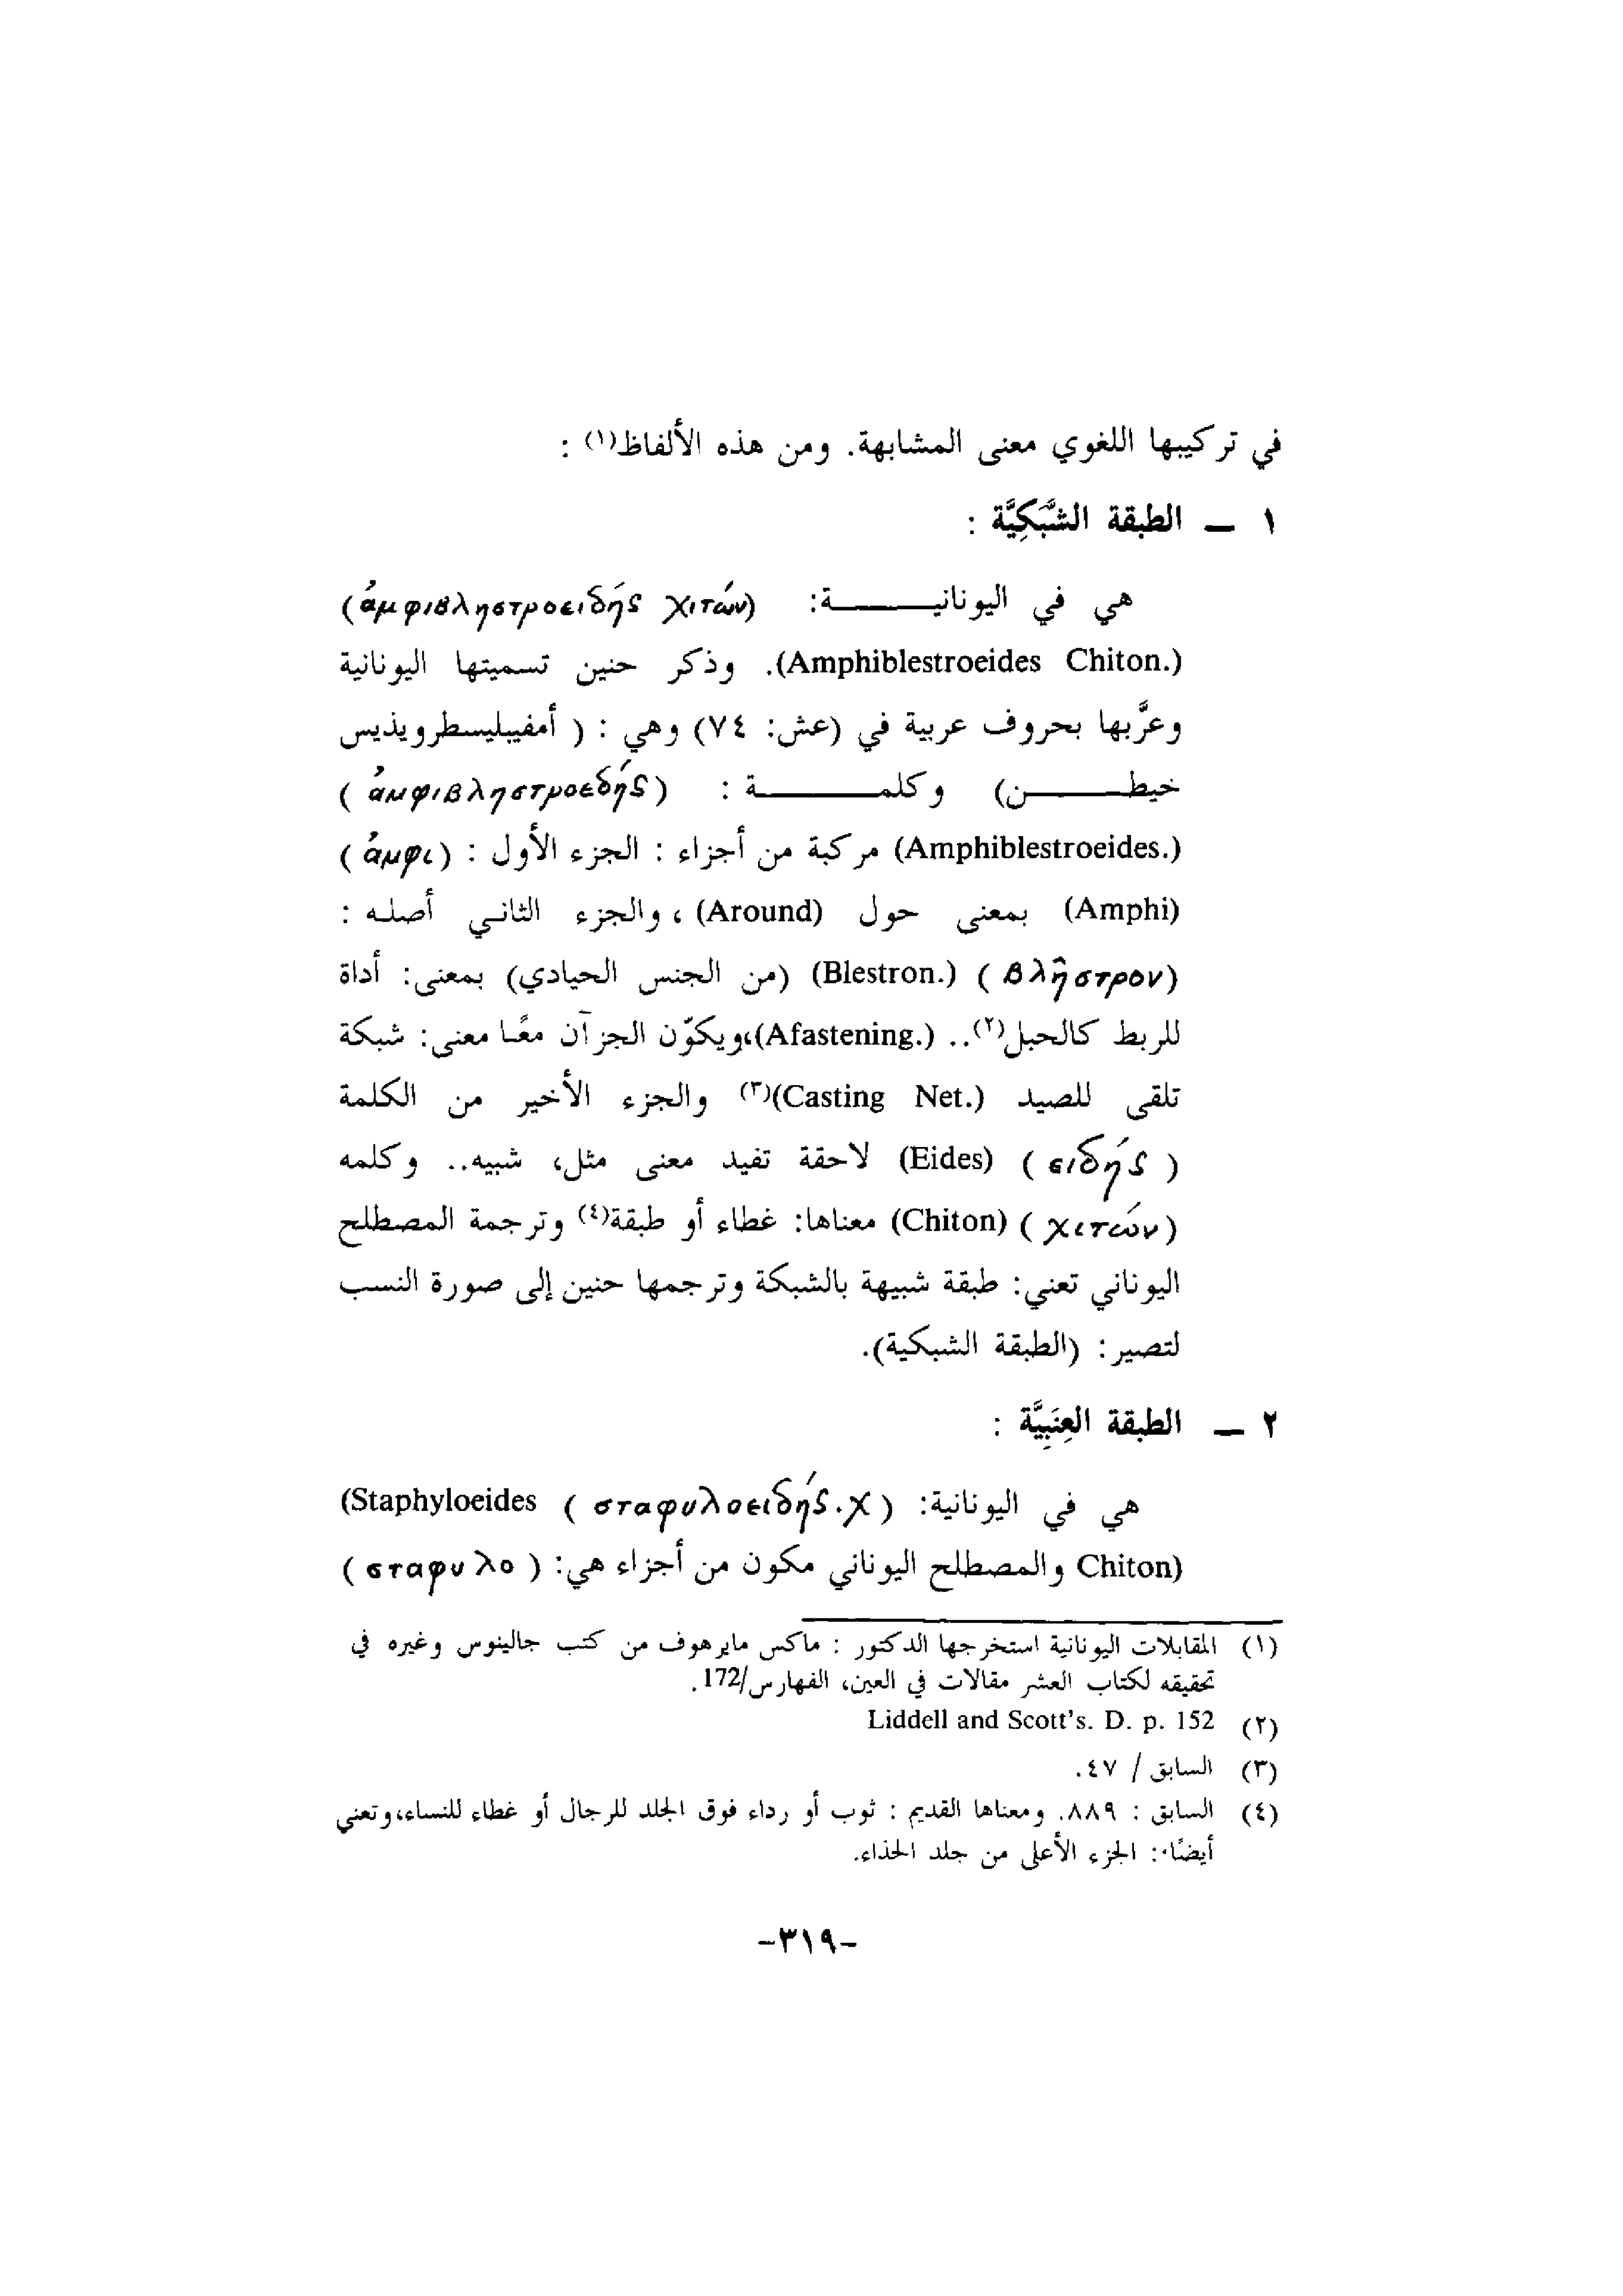 في تركيبها اللغوي معنى المشابهة. ومن هذه الألفاظ(١) :
١ — الطبقة الشَّبَكِيَّة :
هي في اليونانيــــــة: (ἀμφιβληστροειδής χιτών)
(Amphiblestroeides Chiton.). وذكر حنين تسميتها اليونانية
وعرَّبها بحروف عربية في (عش: ٧٤) وهي : ( أمفيبليسطرويذيس
خيطــــــن) وكلمــــــــة : (ἀμφιβληστροεδής )
(Amphiblestroeides.) مركبة من أجزاء : الجزء الأول : (ἀμφι )
(Amphi) بمعنى حول (Around) ، والجزء الثاني أصله :
(βλῆστρον ) (Blestron.) (من الجنس الحيادي) بمعنى: أداة
للربط كالحبل(٢).. (Afastening.)،ويكوّن الجزآن معًا معنى: شبكة
تلقى للصيد (Casting Net.)(٣) والجزء الأخير من الكلمة
( ειδής ) (Eides) لاحقة تفيد معنى مثل، شبيه.. وكلمه
(χιτών ) (Chiton) معناها: غطاء أو طبقة(٤) وترجمة المصطلح
اليوناني تعني: طبقة شبيهة بالشبكة وترجمها حنين إلى صورة النسب
لتصير: (الطبقة الشبكية).
٢ — الطبقة العِنَبِيَّة :
هي في اليونانية: ( σταφυλοειδής.χ ) (Staphyloeides
Chiton) والمصطلح اليوناني مكون من أجزاء هي: ( σταφυλο )
(١) المقابلات اليونانية استخرجها الدكتور : ماكس مايرهوف من كتب جالينوس وغيره في
تحقيقه لكتاب العشر مقالات في العين، الفهارس/172.
(٢) Liddell and Scott's. D. p. 152
(٣) السابق / ٤٧.
(٤) السابق : ٨٨٩. ومعناها القديم : ثوب أو رداء فوق الجلد للرجال أو غطاء للنساء،وتعني
أيضًا: الجزء الأعلى من جلد الحذاء.
-٣١٩-